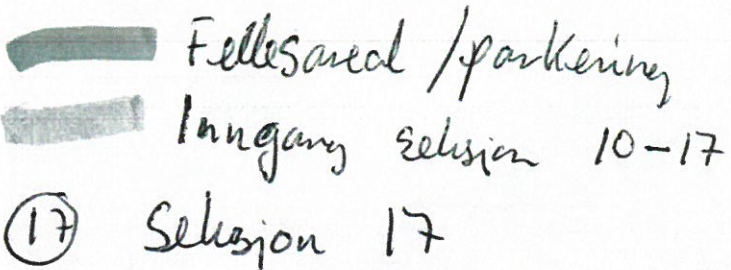 Fellesareal / parkering
Inngang seksjon 10-17
17 Seksjon 17